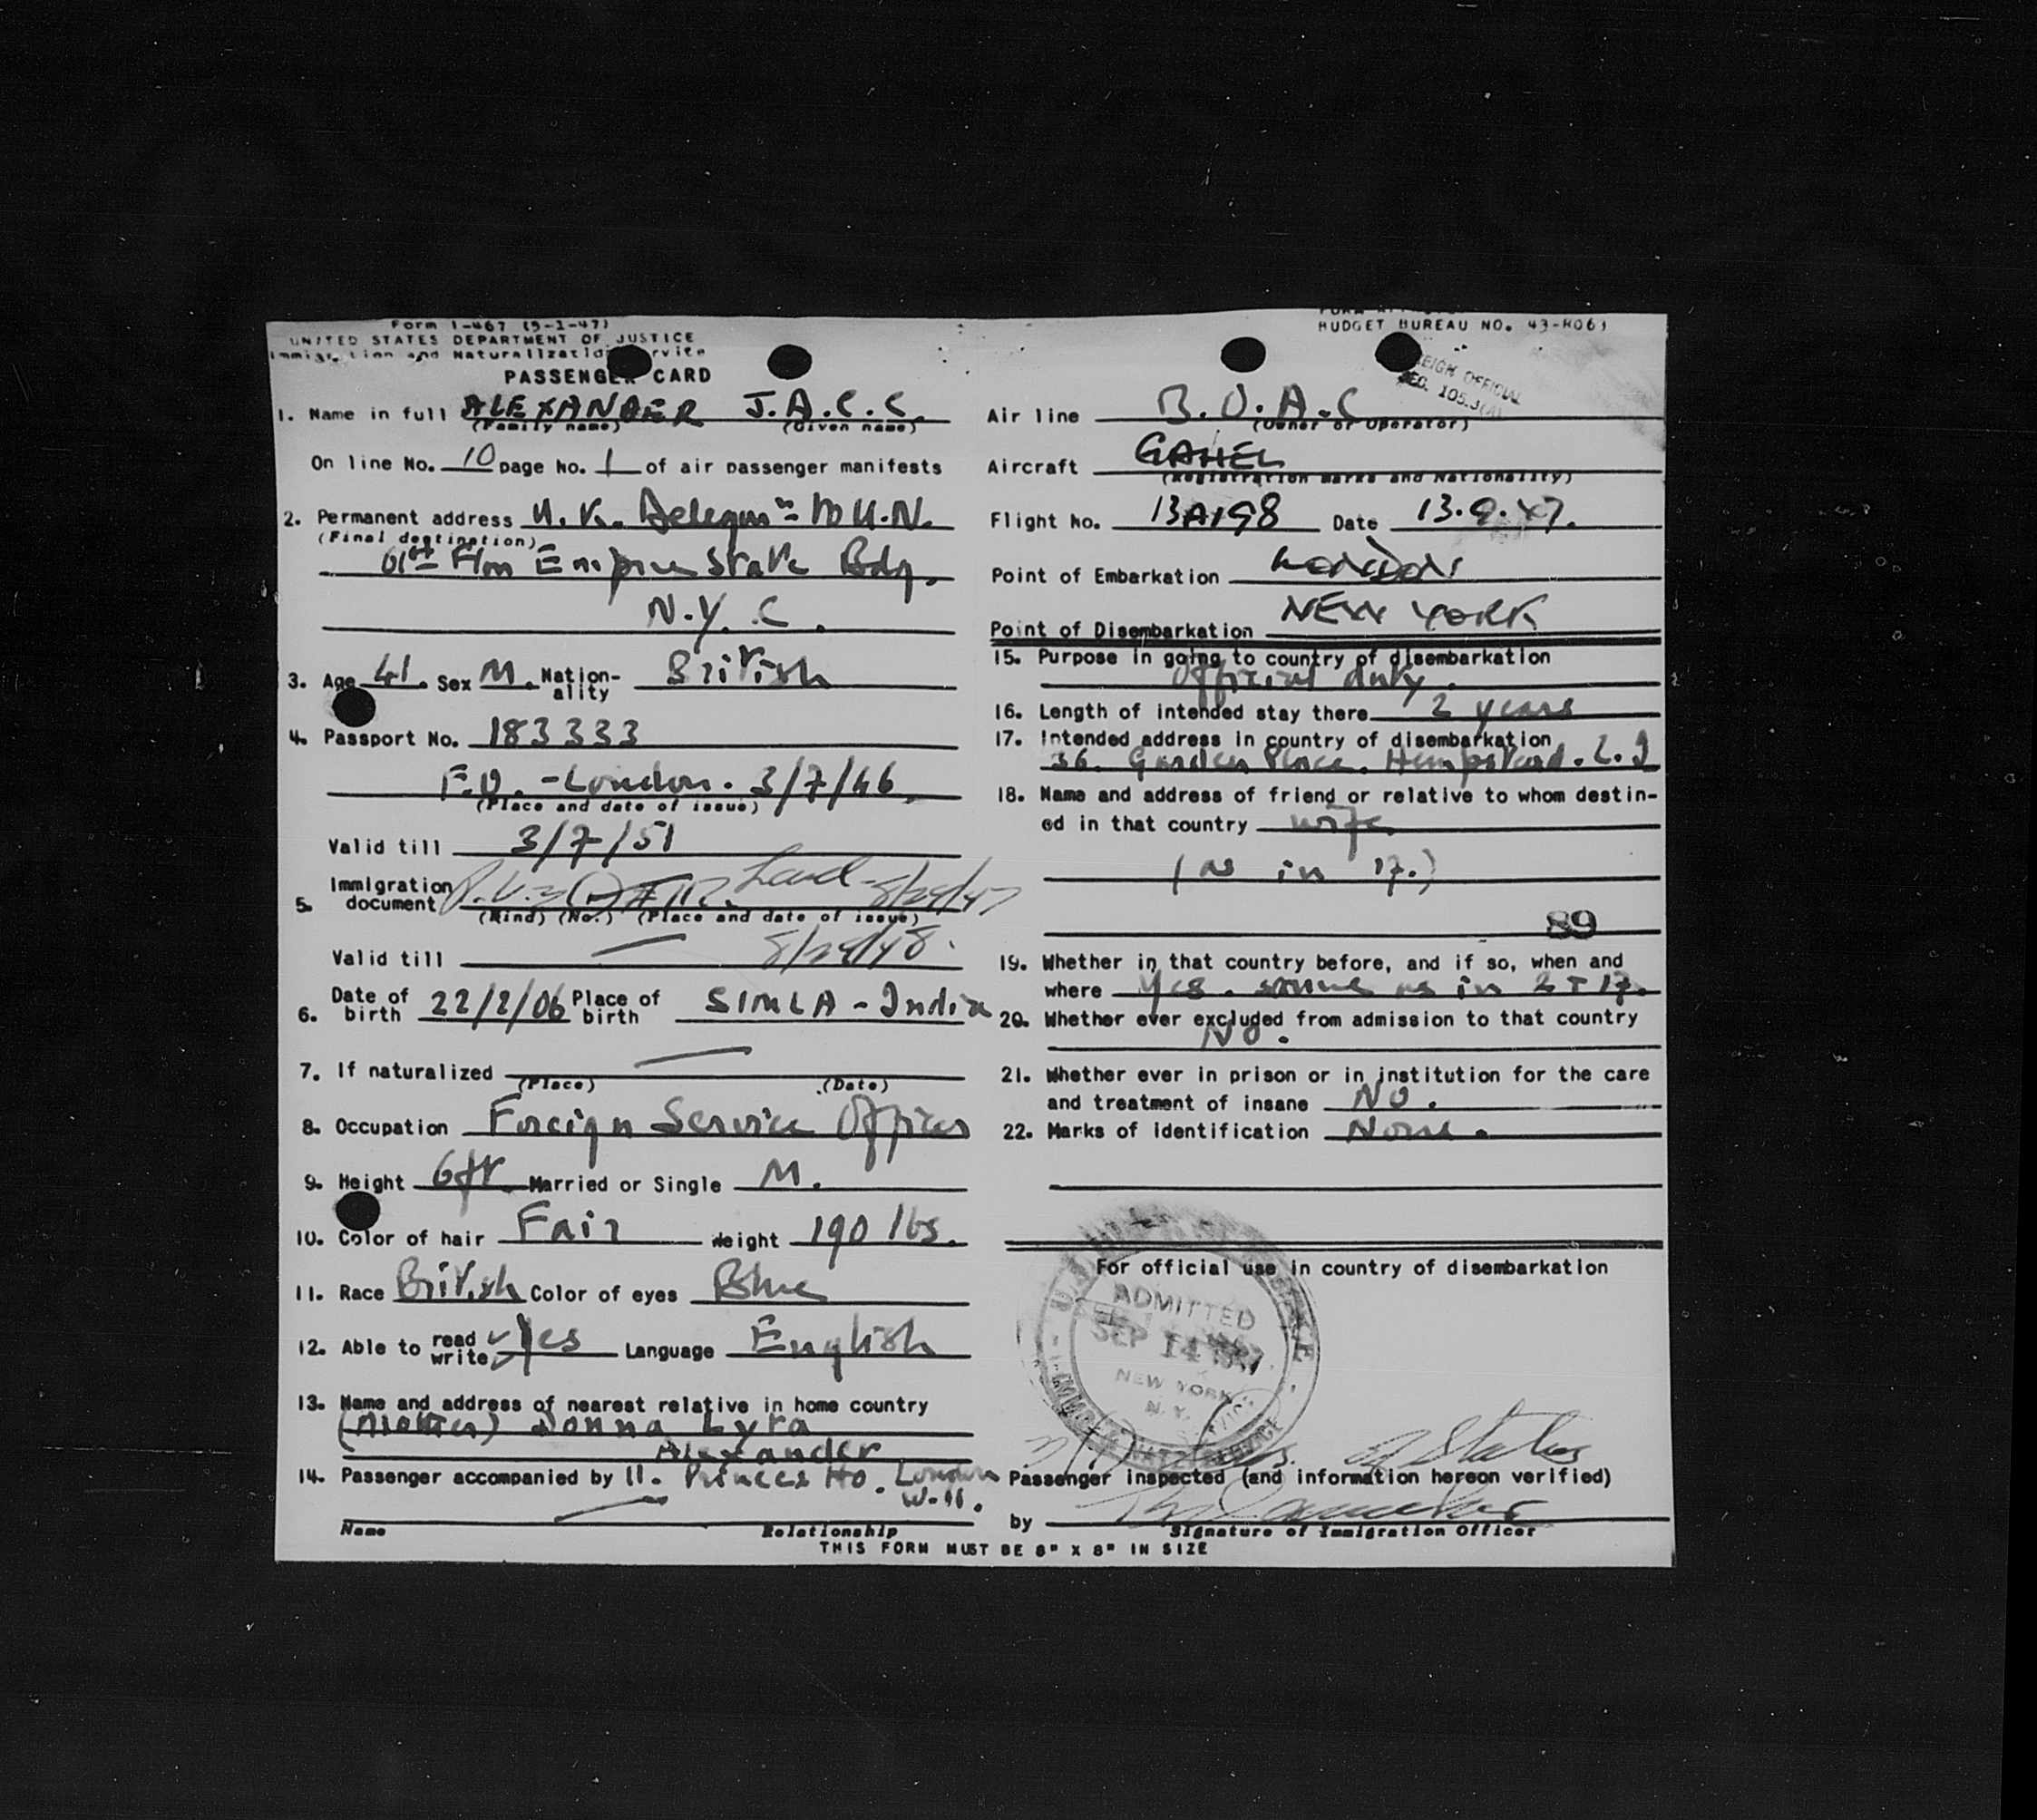 Form I-467 (5-1-47)
UNITED STATES DEPARTMENT OF JUSTICE
Immigration and Naturalization Service
PASSENGER CARD
BUDGET BUREAU NO. 43-R063
1. Name in full ALEXANDER J.A.C.C.
(Family name) (Given name)
On line No. 10 page No. 1 of air passenger manifests
2. Permanent address U.K. Delegn to U.N.
(Final destination)
61st Floor Empire State Bdg.
N.Y.C.
3. Age 41. Sex M. Nation-ality British
4. Passport No. 183333
F.O. - London. 3/7/46
(Place and date of issue)
Valid till 3/7/51
5. Immigration document 8/29/47
(Kind) (No.) (Place and date of issue)
Valid till — 8/29/48.
6. Date of birth 22/2/06 Place of birth SIMLA - India
7. If naturalized —
(Place) (Date)
8. Occupation Foreign Service Officer
9. Height 6ft. Married or Single M.
10. Color of hair Fair Weight 190 lbs.
11. Race British Color of eyes Blue
12. Able to read write Yes Language English
13. Name and address of nearest relative in home country
(Mother) Donna Lyra
Alexander
14. Passenger accompanied by 11. Princes Ho. London
W-11.
—
Name Relationship
Air line B.O.A.C
(Owner or Operator)
Aircraft GAHEL
(Registration marks and Nationality)
Flight No. Date 13.9.47.
Point of Embarkation LONDON
Point of Disembarkation NEW YORK
15. Purpose in going to country of disembarkation
Official duty.
16. Length of intended stay there 2 years
17. Intended address in country of disembarkation
36. Garden Place. Hempstead. L.I
18. Name and address of friend or relative to whom destin-
ed in that country wife
(as in 17.)
89
19. Whether in that country before, and if so, when and
where Yes. same as in 2 + 17.
20. Whether ever excluded from admission to that country
No.
21. Whether ever in prison or in institution for the care
and treatment of insane NO.
22. Marks of identification None.
For official use in country of disembarkation
ADMITTED
SEP 14 1947
NEW YORK
N.Y.
Passenger inspected (and information hereon verified)
by
Signature of Immigration Officer
THIS FORM MUST BE 8" X 8" IN SIZE